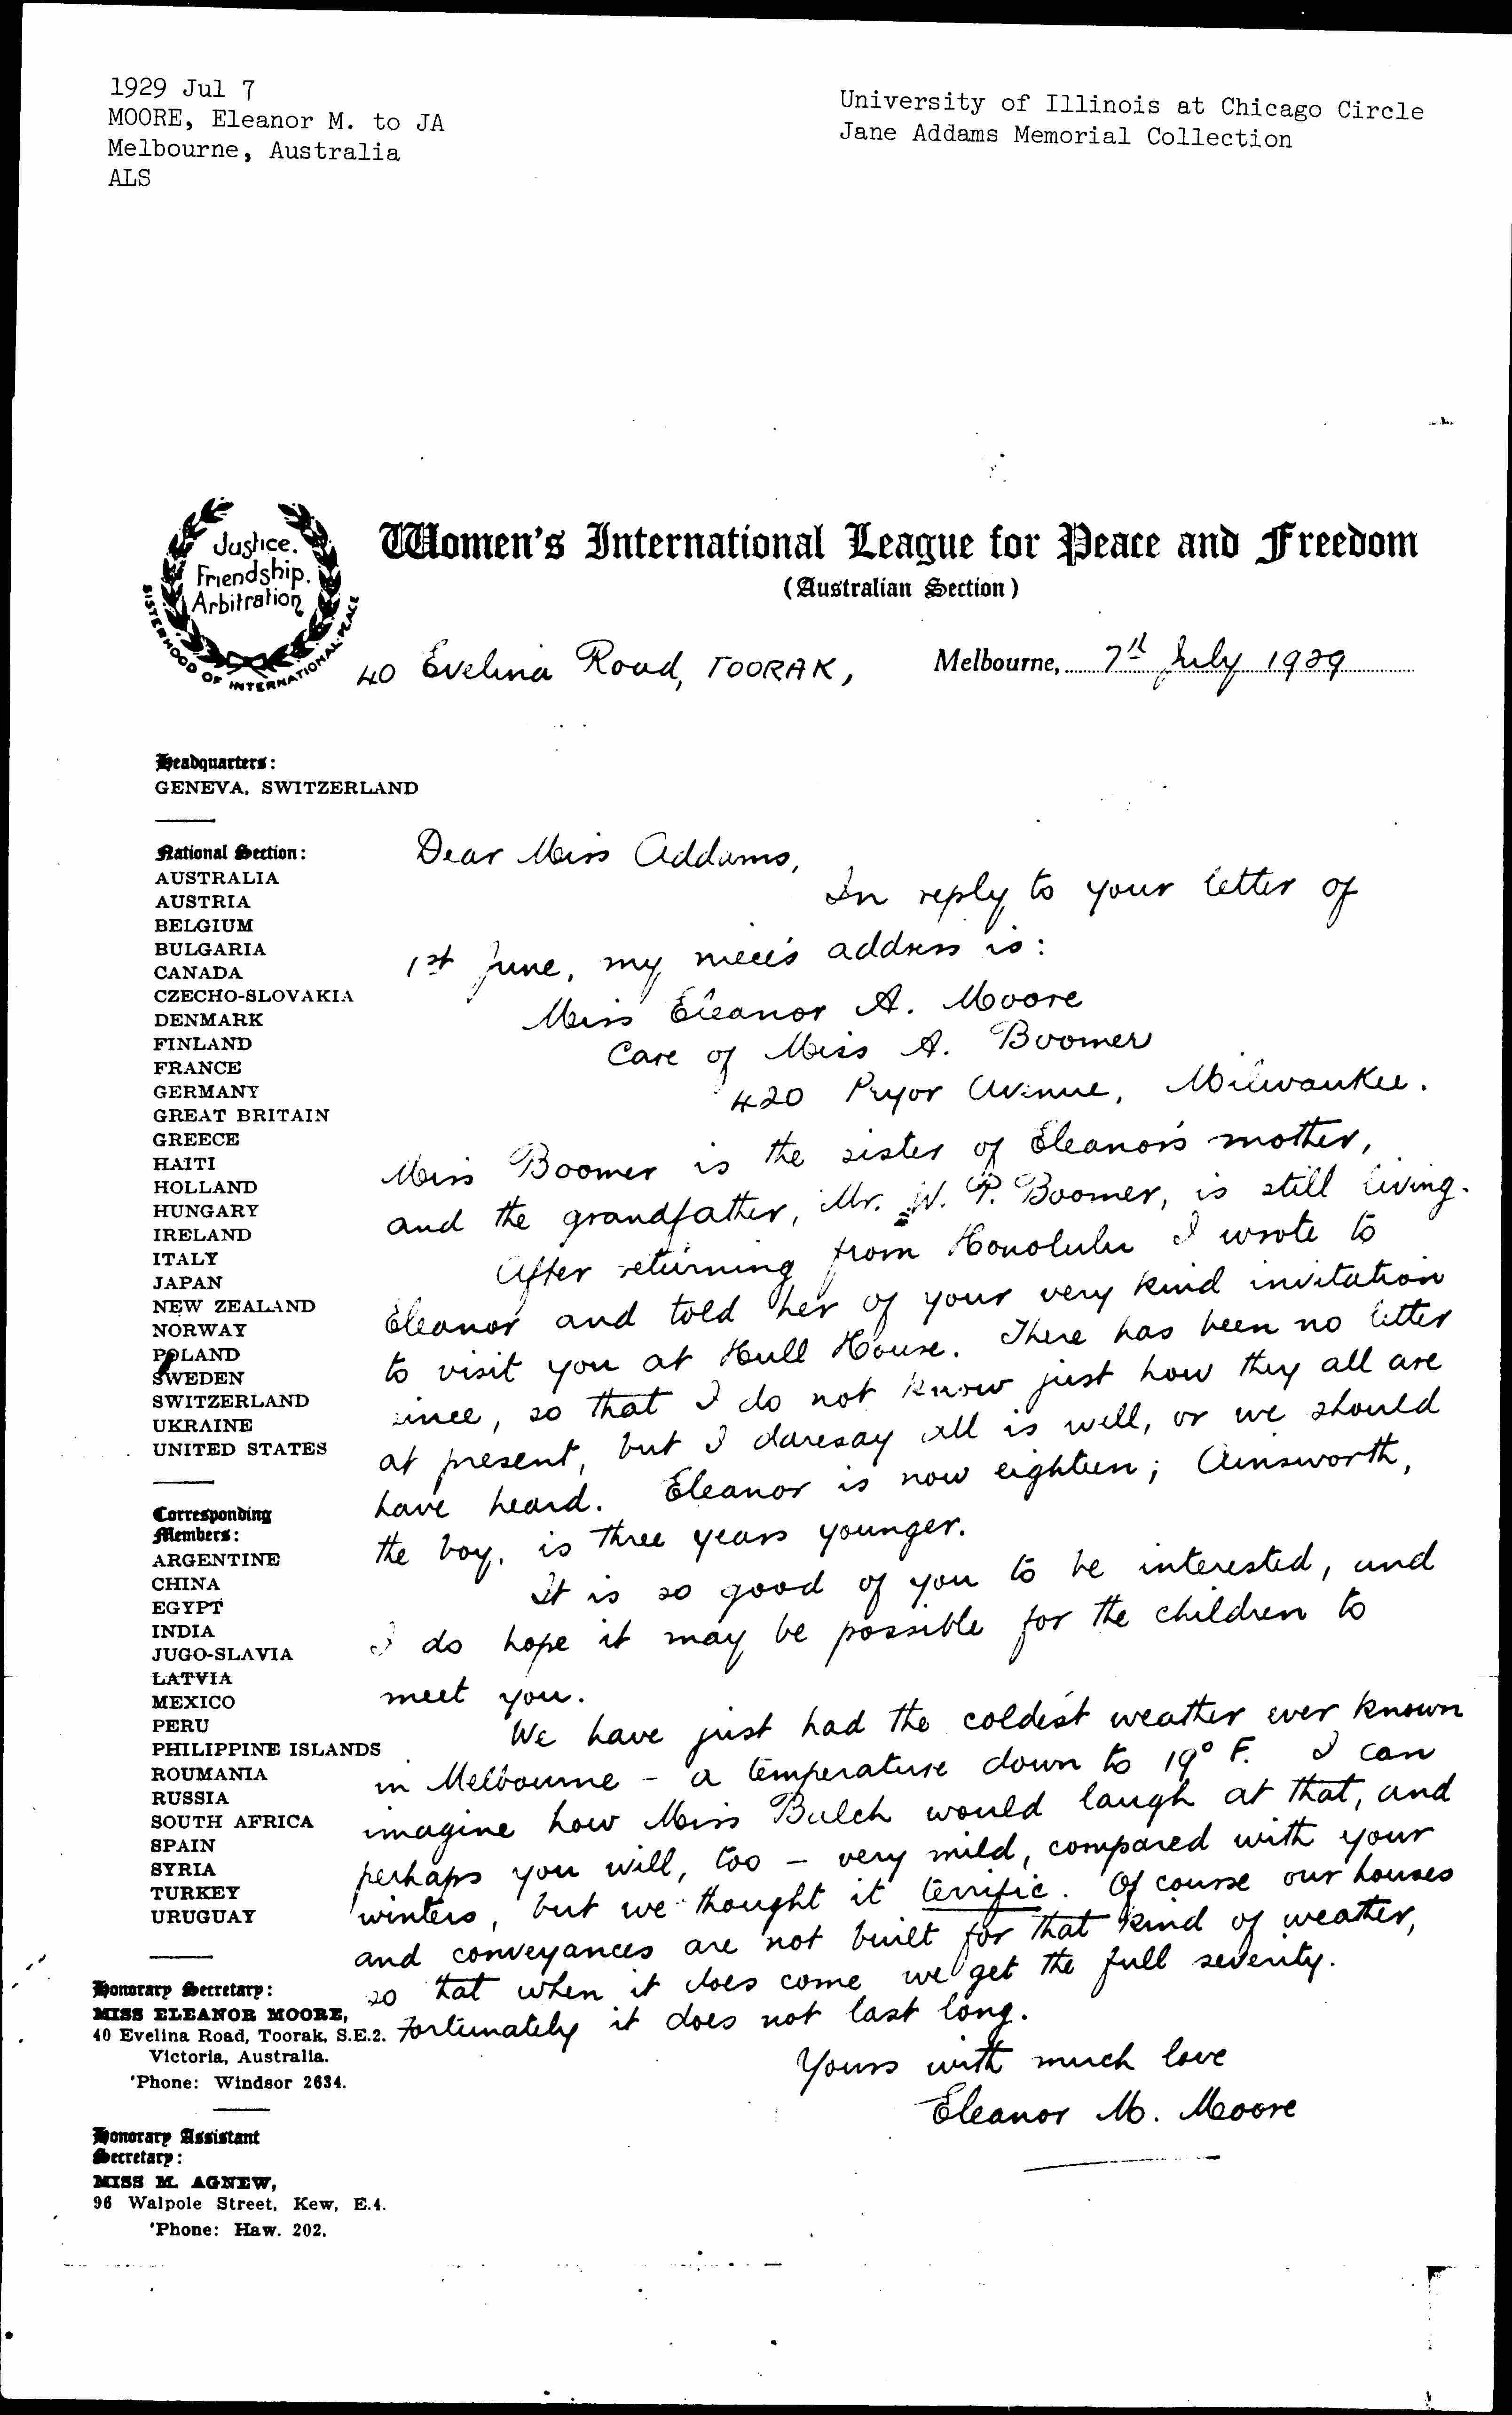 1929 Jul 7
MOORE, Eleanor M. to JA
Melbourne, Australia
ALS
University of Illinois at Chicago Circle
Jane Addams Memorial Collection
Justice.
Friendship.
Arbitration
SISTERHOOD OF INTERNATIONAL PEACE
Women's International League for Peace and Freedom
(Australian Section)
40 Evelina Road, TOORAK, Melbourne, 7th July 1929
Headquarters:
GENEVA, SWITZERLAND
National Section:
AUSTRALIA
AUSTRIA
BELGIUM
BULGARIA
CANADA
CZECHO-SLOVAKIA
DENMARK
FINLAND
FRANCE
GERMANY
GREAT BRITAIN
GREECE
HAITI
HOLLAND
HUNGARY
IRELAND
ITALY
JAPAN
NEW ZEALAND
NORWAY
POLAND
SWEDEN
SWITZERLAND
UKRAINE
UNITED STATES
Corresponding
Members:
ARGENTINE
CHINA
EGYPT
INDIA
JUGO-SLAVIA
LATVIA
MEXICO
PERU
PHILIPPINE ISLANDS
ROUMANIA
RUSSIA
SOUTH AFRICA
SPAIN
SYRIA
TURKEY
URUGUAY
Honorary Secretary:
MISS ELEANOR MOORE,
40 Evelina Road, Toorak, S.E.2.
Victoria, Australia.
'Phone: Windsor 2634.
Honorary Assistant
Secretary:
MISS M. AGNEW,
96 Walpole Street, Kew, E.4.
'Phone: Haw. 202.
Dear Miss Addams,
In reply to your letter of
1st June, my niece's address is:
Miss Eleanor A. Moore
Care of Miss A. Boomer
420 Pryor Avenue, Milwaukee.
Miss Boomer is the sister of Eleanor's mother,
and the grandfather, Mr. W. P. Boomer, is still living.
After returning from Honolulu I wrote to
Eleanor and told her of your very kind invitation
to visit you at Hull House. There has been no letter
since, so that I do not know just how they all are
at present, but I daresay all is well, or we should
have heard. Eleanor is now eighteen; Ainsworth,
the boy, is three years younger.
It is so good of you to be interested, and
I do hope it may be possible for the children to
meet you.
We have just had the coldest weather ever known
in Melbourne - a temperature down to 19° F. I can
imagine how Miss Balch would laugh at that, and
perhaps you will, too - very mild, compared with your
winters, but we thought it terrific. Of course our houses
and conveyances are not built for that kind of weather,
so that when it does come we get the full severity.
Fortunately it does not last long.
Yours with much love
Eleanor M. Moore